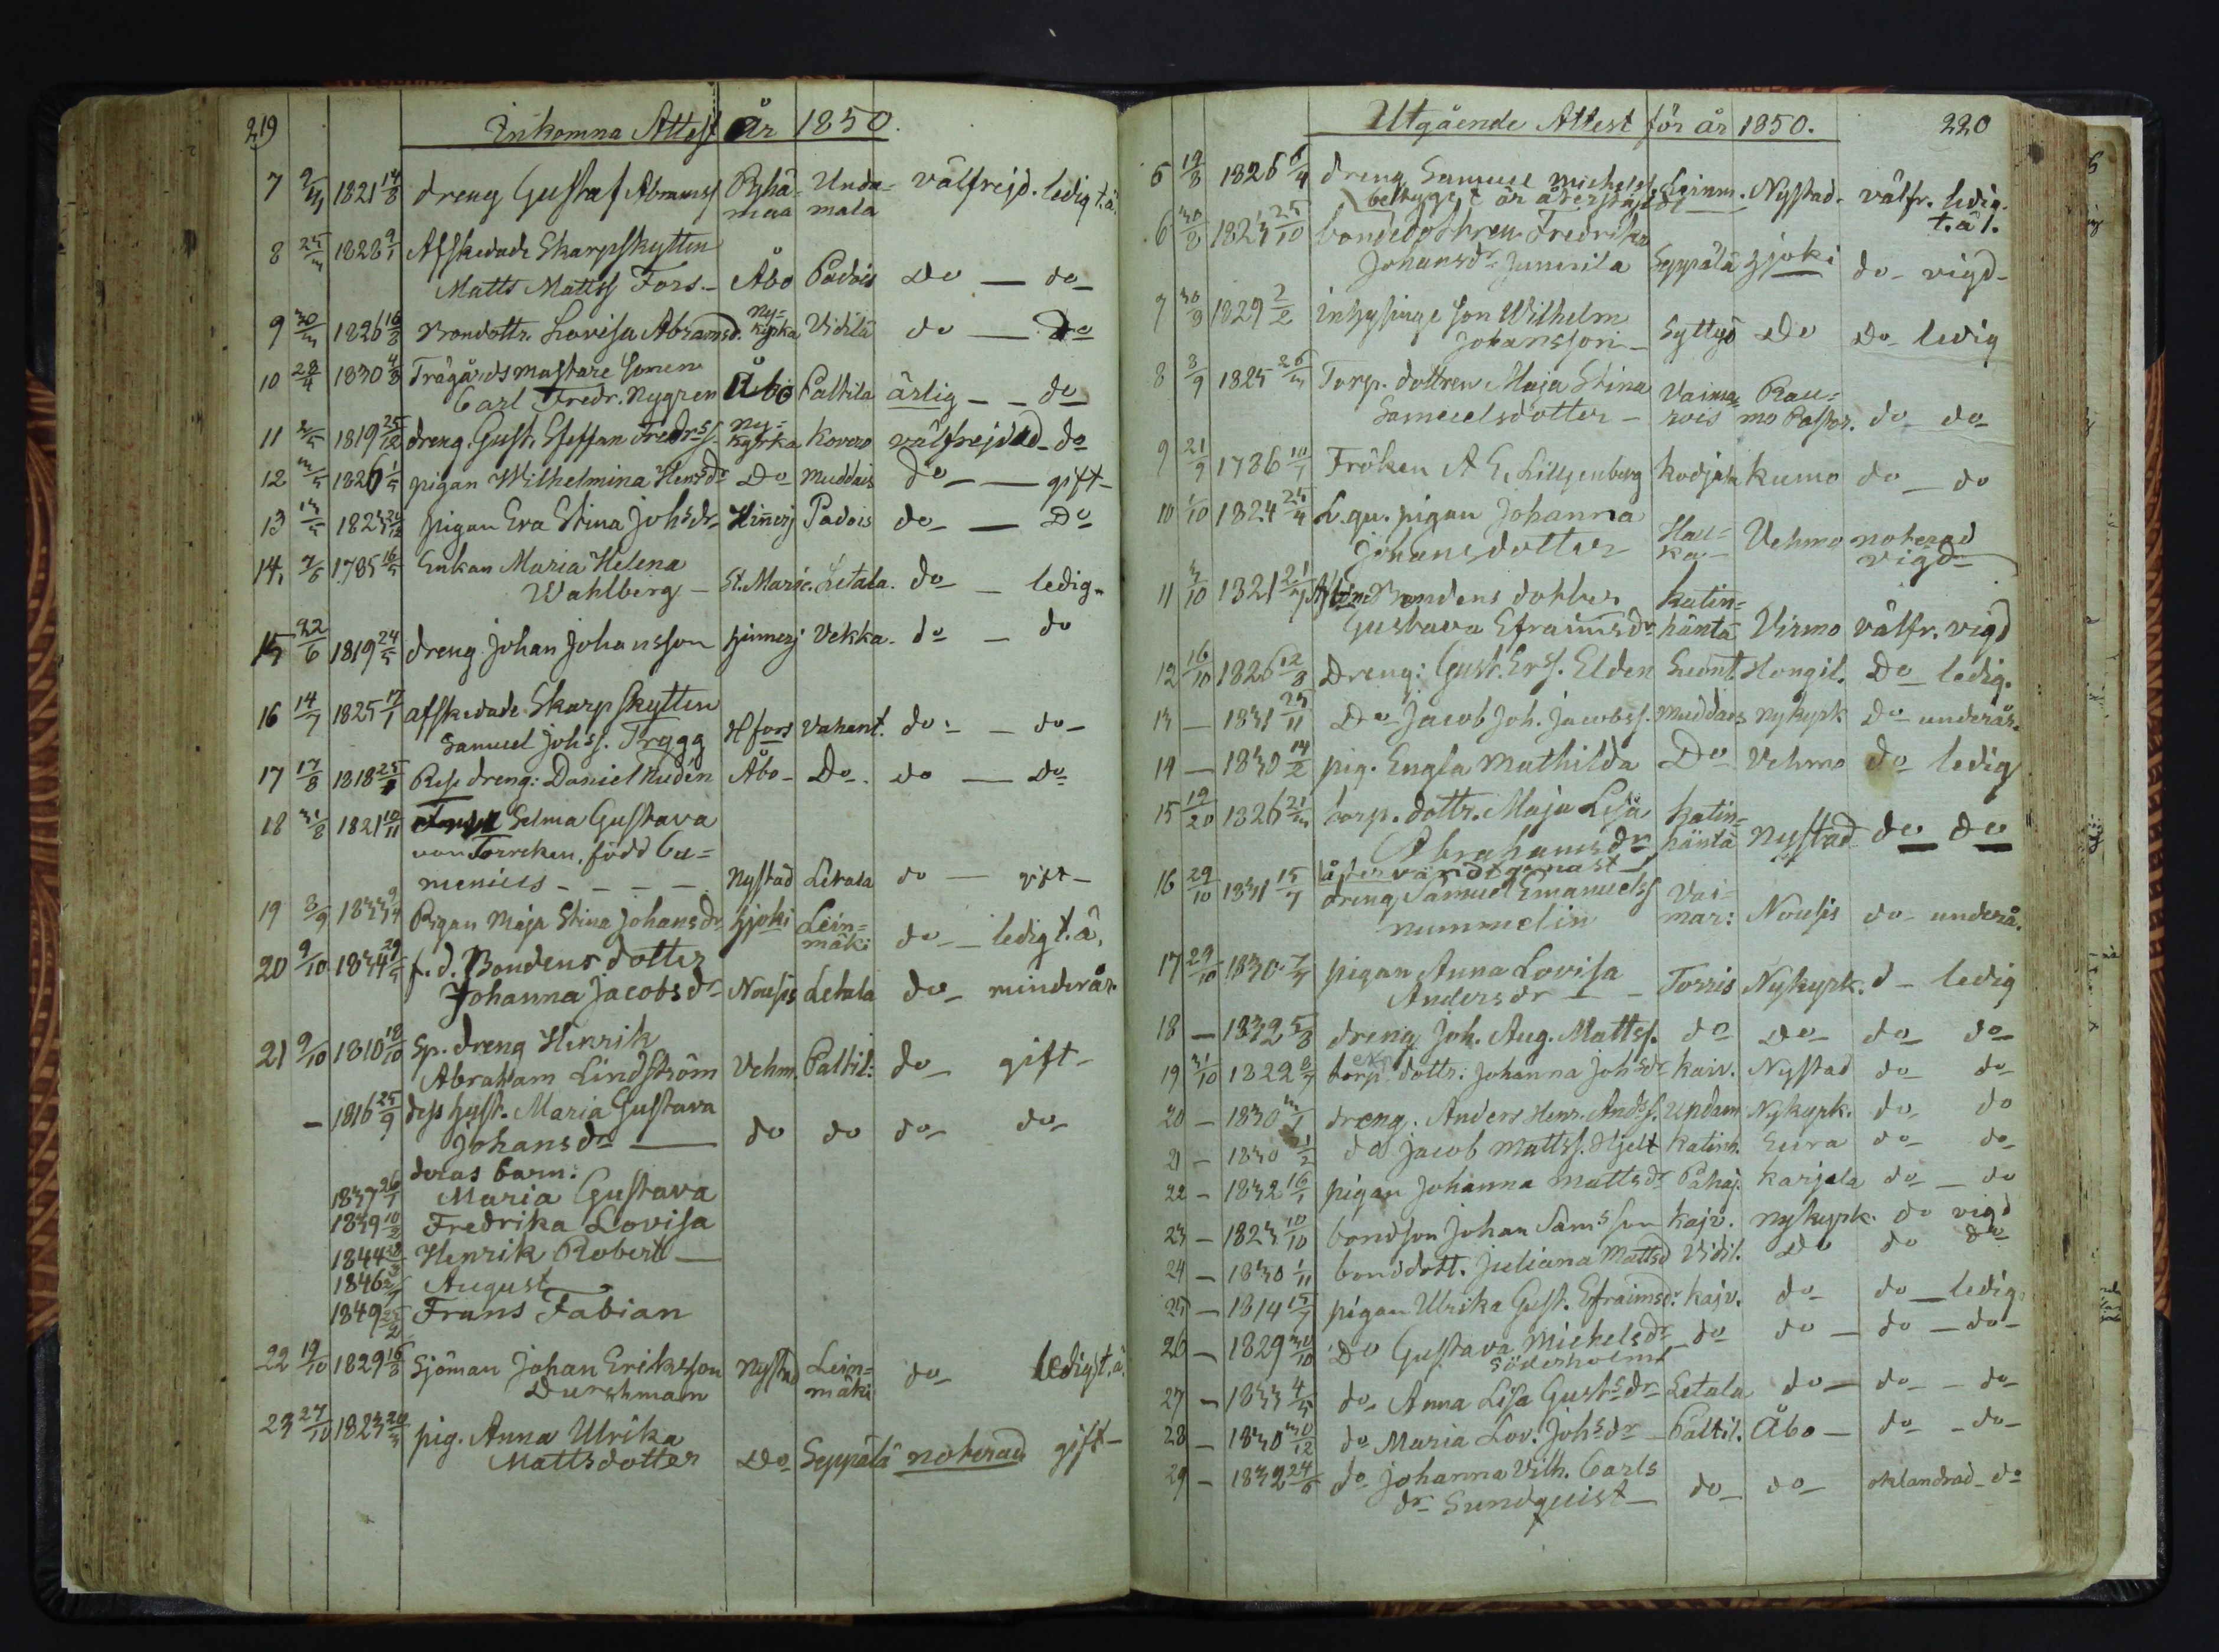 219
Inkomna Attest År 1850.
7 1821 14/8 dreng Gustaf Abramss Pyhä- Unda- välfrejd. ledig t.ä.
maa mala
8 1828 9/1 Afskedade Skarpskytten
Matts Mattss Fors. - Åbo Padois Do - do
9 1826 16/8 Bondottr. Lovisa Abramsd. Ny= kyrka Vidilä do - Do
10 28/4 1830 4/8 Trägårdsmastare Sonen
Carl Fredr. Nygren Åbo Paltila ärlig - - do
11 1819 25/12 dreng. Gust. Steffan Fredrss. Ny= kyrka Kovero välfrejdad - do
12 1826 1/5 pigan Wilhelmina Hensdr Do Muddais do - - gift -
13 pigan Eva Stina Johsdr Hinerj Padois do - Do
14 7/6 1785 16/5 Enkan Maria Helena
Wahlberg - St. Marie. Letala. do - ledig.
15 22/6 1819 24/5 dreng Johan Johansson hinnerj Vekka. do - do
16 14/7 1825 17/1 afskedade Skarpskytten
Samuel Johss. Trygg Hfors Vahant. do - do -
17 17/8 1818 Res. dreng: Daniel Hudén Åbo - Do. do - Do
18 31/8 1821 10/11 Selma Gustava
von Torreken, född Ca=
menius - - - - Nystad Letala do - gift -
19 8/9 Pigan Maja Stina Johansdr Hjoki Lein=
mäki do - ledig t. ä.
20 9/10 f. d. Bondens dotter
Johanna Jacobsdr Nousis Letala do - minderår.
21 9/10 1810 18/10 Sp. dreng Henrik
Abraham Lindström Vehm. Paltil: do - gift -
- 1816 25/9 dess hust. Maria Gustava
Johansdr - do do do - do -
deras barn:
1837 26/1 Maria Gustava
1839 10/2 Fredrika Lovisa
1844 Henrik Robert -
1846 August
1849 25/2 Frans Fabian
22 19/10 1829 16/8 Sjöman Johan Eriksson Nystad Lein= do - ledig t. ä.
Durchman mäki
23 27/10 1823 pig. Anna Ulrika
Mattsdotter Do Seppälä noterad gift -
Utgående Attest för år 1850. 220
19/8 1826 dreng Samuel Michelss Leinm. Nystad. välfr. ledig.
betyget är återstäldt t. ä 1.
6 30/8 1823 25/10 bondedottren Fredrika
Johansdr Junnila Seppälä Hjoki do - vigd -
7 1829 2/2 inhysinge son Wilhelm
Johansson - Syttyö Do Do ledig
8 8/9 1825 Torp. dottren Maja Stina Vaima= Rau=
Samuelsdotter - rois mo Pastor. do - do -
9 21/9 1786 Fröken A E. Lilljenberg Kodjala Kumo do - do
10 1/10 1824 L. qv. pigan Johanna
Johansdotter Hau= ka - Vehmo noterad
vigd -
11 1821 Bondens dotter Katin=
Gustava Efraimsdr häntä Virmo välfr. vigd
12 16/10 1826 12/8 Dreng: Gust. Erss. Elden Suont. Hongil. Do - ledig.
13 - 1831 25/11 Do Jacob Joh. Jacobss. Muddais Nykyrk Do - underår.
14 - 1830 14/2 pig. Engla Mathilda Do Vehmo do - ledig
15 19/20 1826 torp. dottr. Maja Lisa Katin=
Abrahamsdr häntä Nystad do do
återvändt genast
16 29/10 1831 15/7 dreng Samuel Emanuelss Vai=
Nummelin mar: Nousis do - underå.
17 29/10 1830 pigan Anna Lovisa
Andersdr - - Torris Nykyrk. d - ledig
18 - 1832 5/8 dreng Joh. Aug. Mattss. do Do - do - do -
19 31/10 1822 torp. dottr: Johanna Johsdr Kaiv. Nystad do - do -
20 - 1830 dreng. Anders Henr. Andss. Undam Nykyrk. do - do
21 - 1830 do Jacob Mattss. Hjelt Katinh. Eura do - do -
22 - 1832 16/1 pigan Johanna Mattsdr Pähaj. Karjala do - do
23 - 1823 10/10 bondson Johan Samsson Kajv. Nykyrk. do vigd
24 - 1830 1/11 bonddott. Juliana Mattsd Vidil. Do do do
25 - 1814 15/7 pigan Ulrika Gust. Efraimsdr. Kajv. do - do - ledig.
26 - 1829 30/10 Do Gustava Michelsdr - do do - do - do -
Söderholm
27 - 1833 4/5 do - Anna Lisa Gustsdr Letala do - do - - do -
28 - 1830 30/12 do Maria Lov. Johsdr - Paltil. Åbo - do - - do -
29 - 1832 24/6 do Johanna Vilh. Carls
dr Sundquist - do - do - oklandrad - do